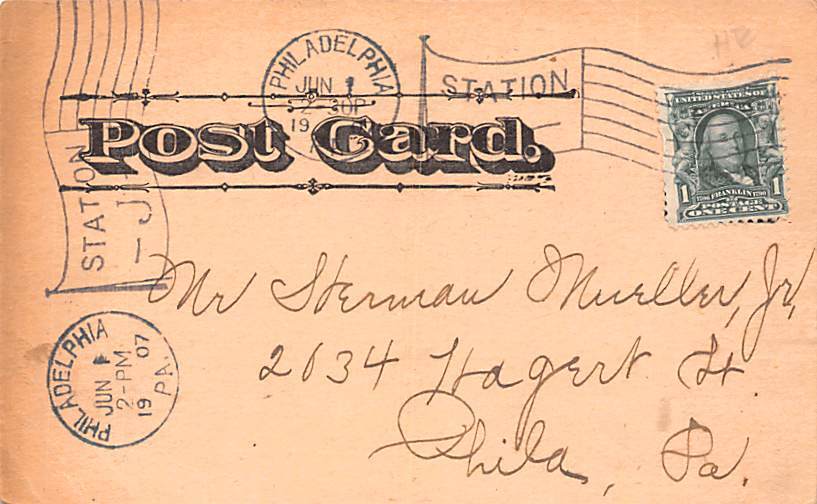 PHILADELPHIA
JUN 1
2-30P
19
STATION
UNITED STATES OF AMERICA
1 FRANKLIN 1
POSTAGE
ONE CENT
Post Card.
STATION
J
Mr Sherman Mueller, Jr,
2634 Hagert St
Phila, Pa.
PHILADELPHIA PA.
JUN 1
2-PM
19 07